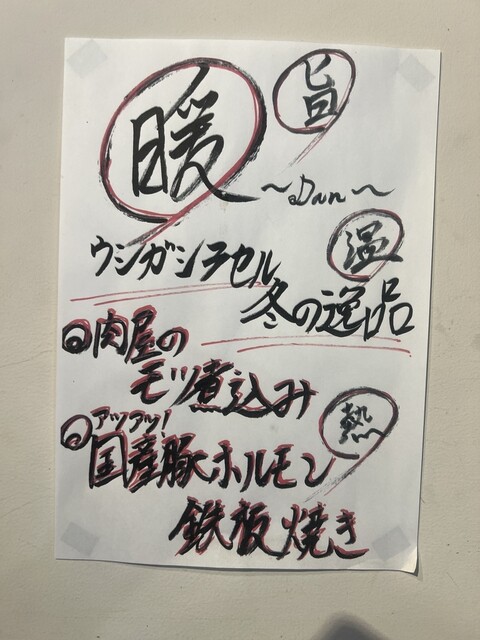 旨
暖
～Dan～
温
ウシガシラセル
冬の逸品
肉屋の
モツ煮込み
熱
アツアツ!
国産豚ホルモン
鉄板焼き